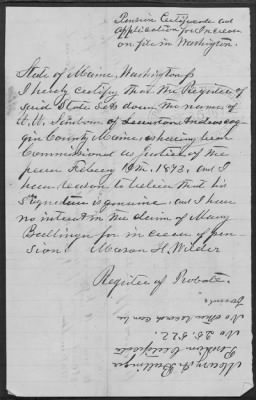 Pension Certificate and
application for Increase
on file in Washington.
State of Maine, Washington ss
I hereby certify that the Register of
said State sets down the name of
of Lewiston Androscog
gin County Maine, as having been
Commissioned as Justice of the
peace 19th. 1892, and I
have reason to believe that his
signature is genuine, and I have
no interest in the claim of Mary
Budlinger for increase of pen-
sion. Mason H. Wilder
Register of Probate.
Mary A. Budlinger
Pension Certificate
No 25,822.
No other record can be
found.